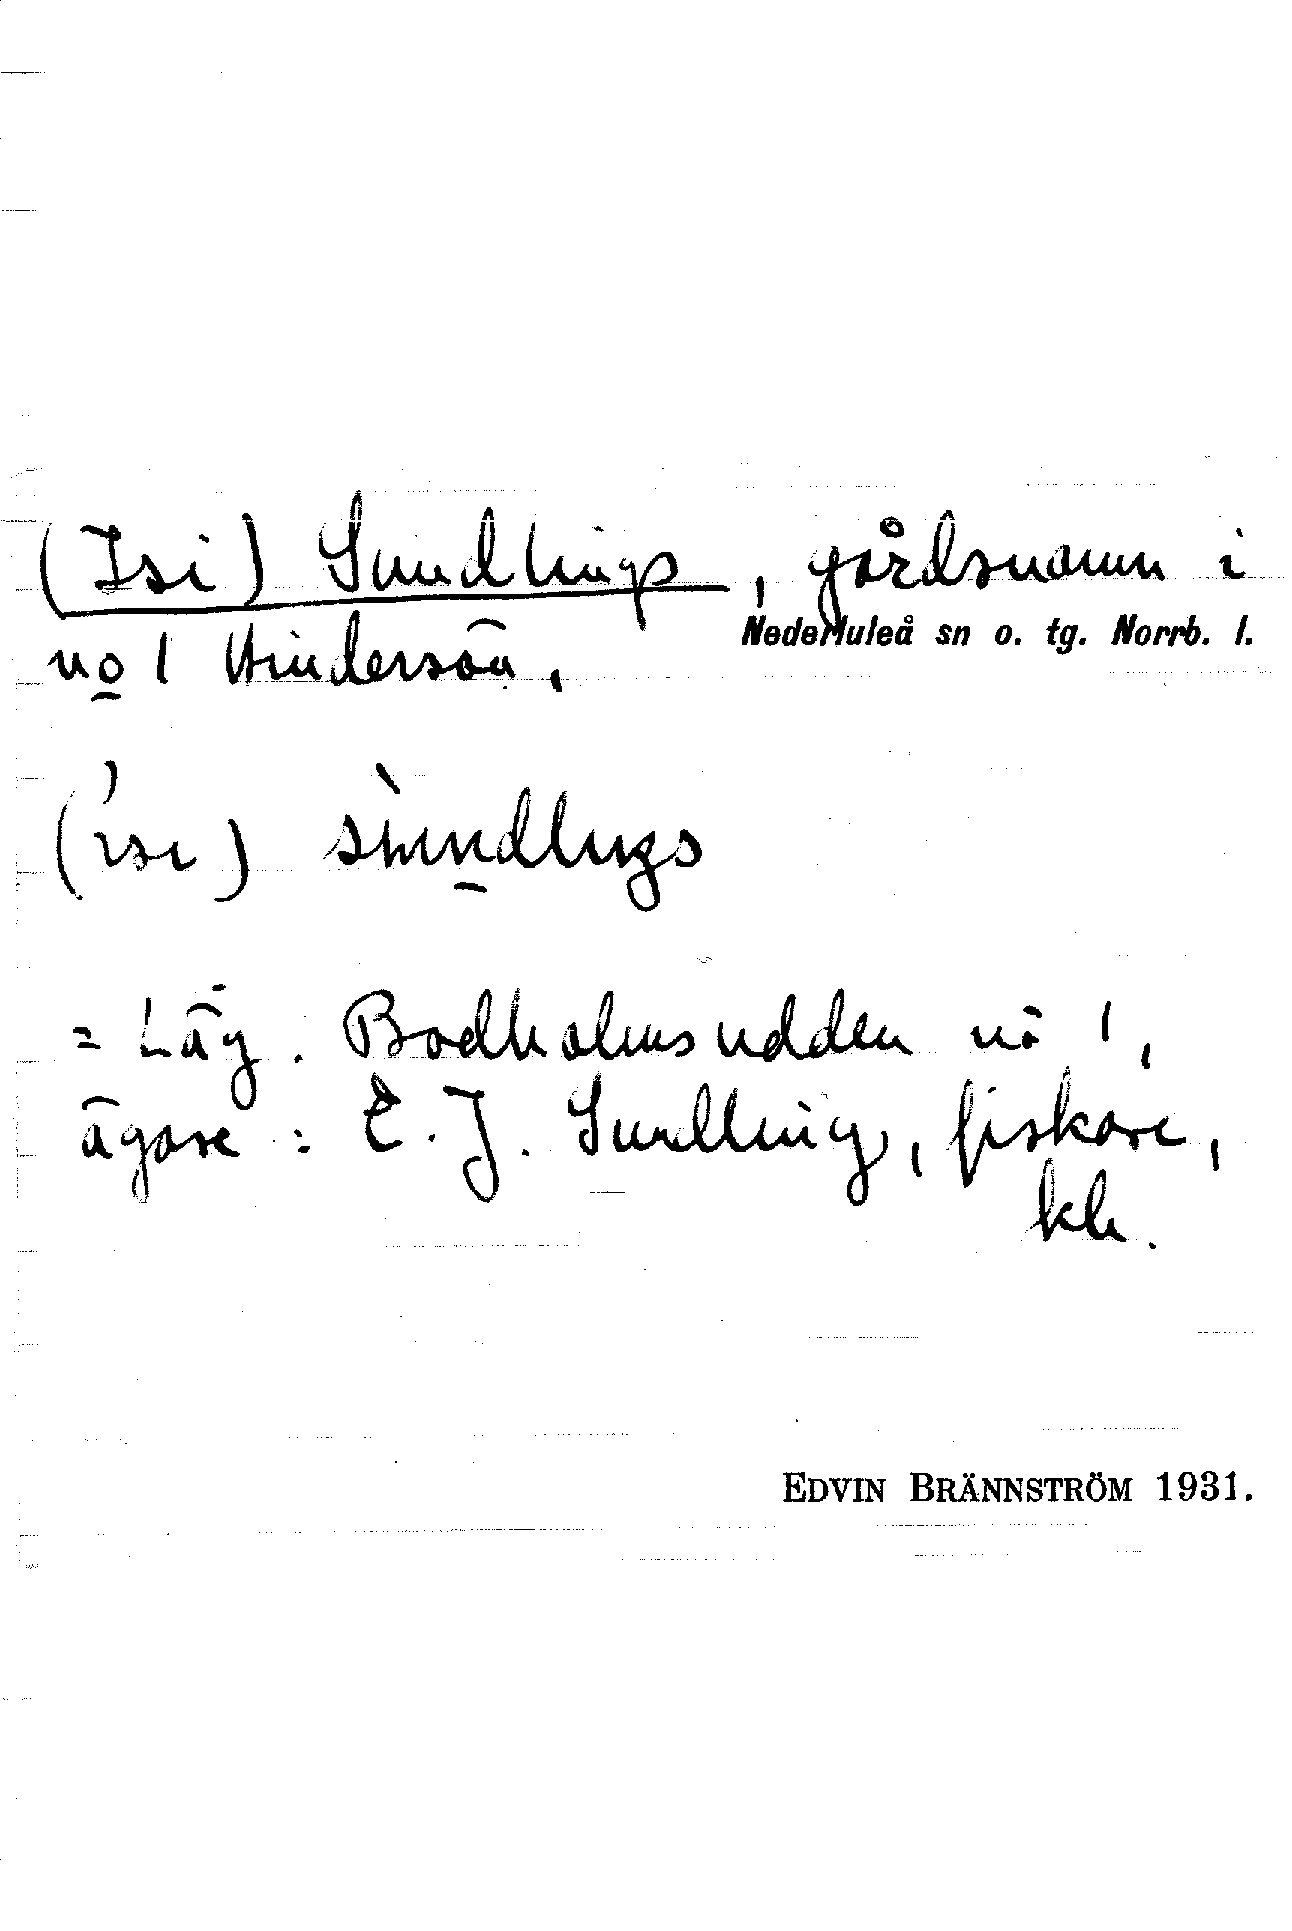 (Isi) Sundlings, gårdsnamn i
Nederluleå sn o. tg. Norrb. l.
no 1 Hindersön.
(isi) sundlings
= Läg. Bodholmsudden no 1,
ägare: E. J. Sundling, fiskare,
EDVIN BRÄNNSTRÖM 1931.